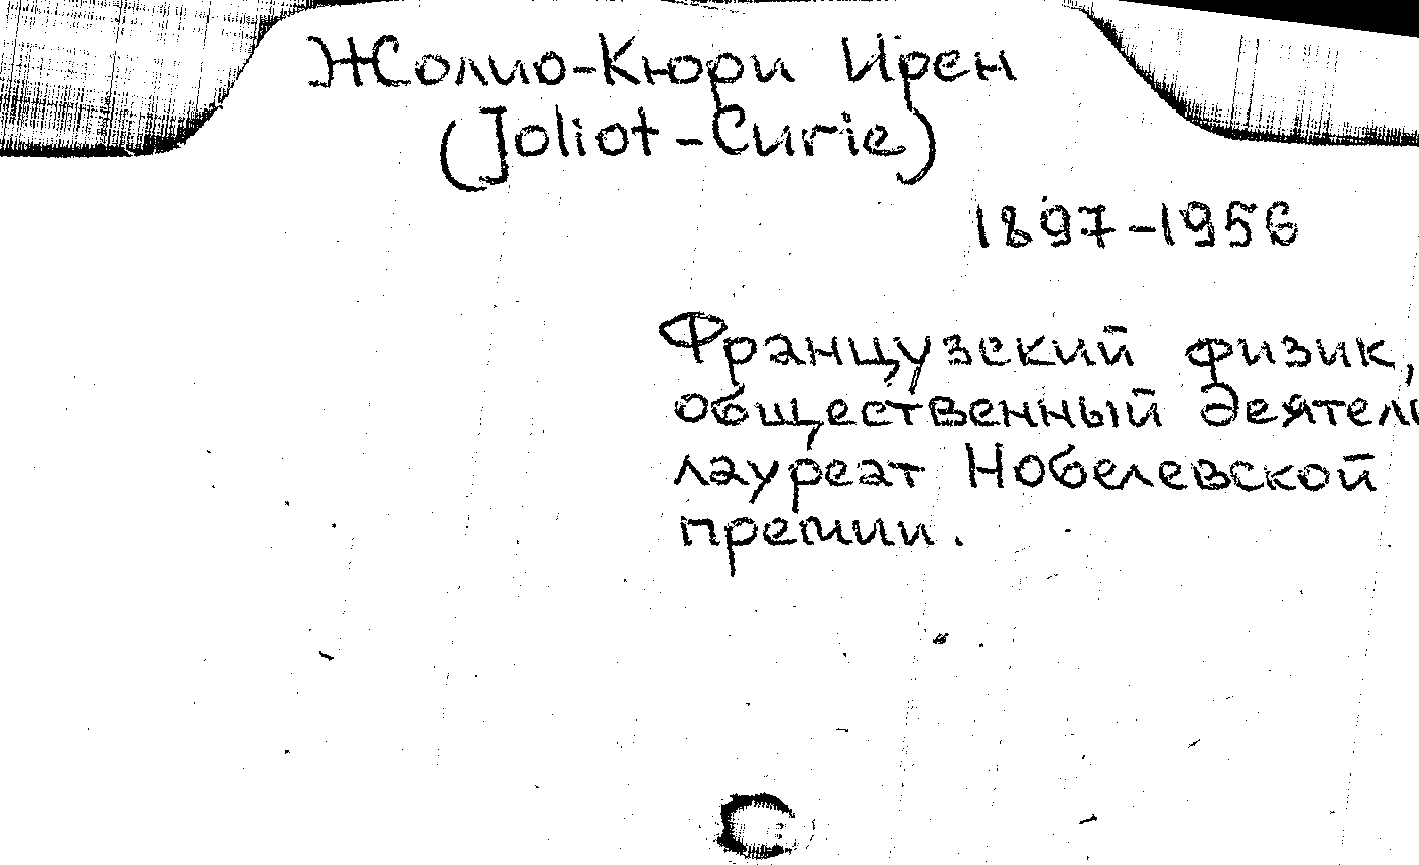 Жолио-Кюри Ирен
(Joliot-Curie)
1897-1956
Французский физик,
общественный деятель
лауреат Нобелевской
премии.